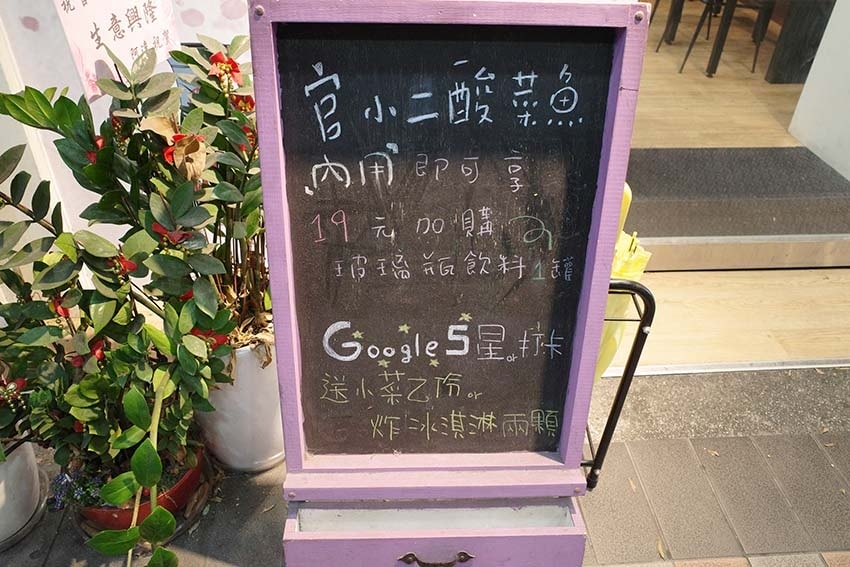 生意興隆
官小二酸菜魚
內用即可享
19元加購
玻璃瓶飲料1罐
Google 5星or打卡
送小菜乙份or
炸冰淇淋兩顆